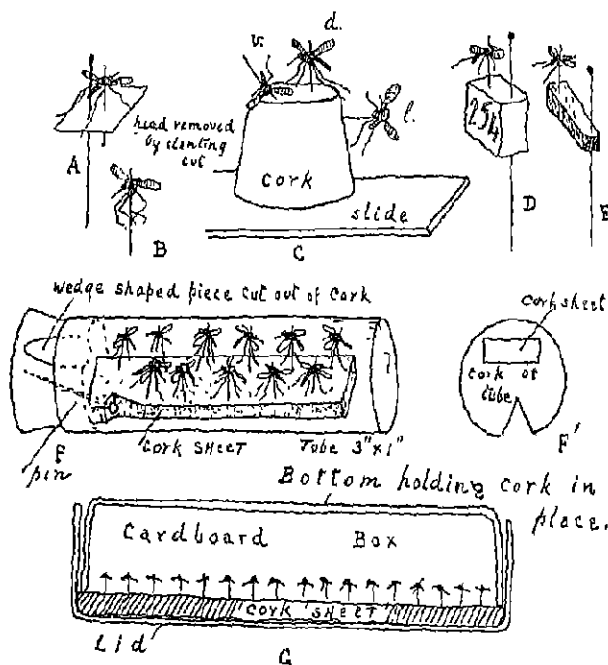 v.
d.
l.
head removed
by slanting
cut
cork
slide
254
A
B
C
D
E
wedge shaped piece cut out of cork
F
pin
cork sheet
Tube 3"x1"
cork sheet
cork of
tube
F'
Bottom holding cork in
place.
Cardboard Box
cork sheet
Lid
G